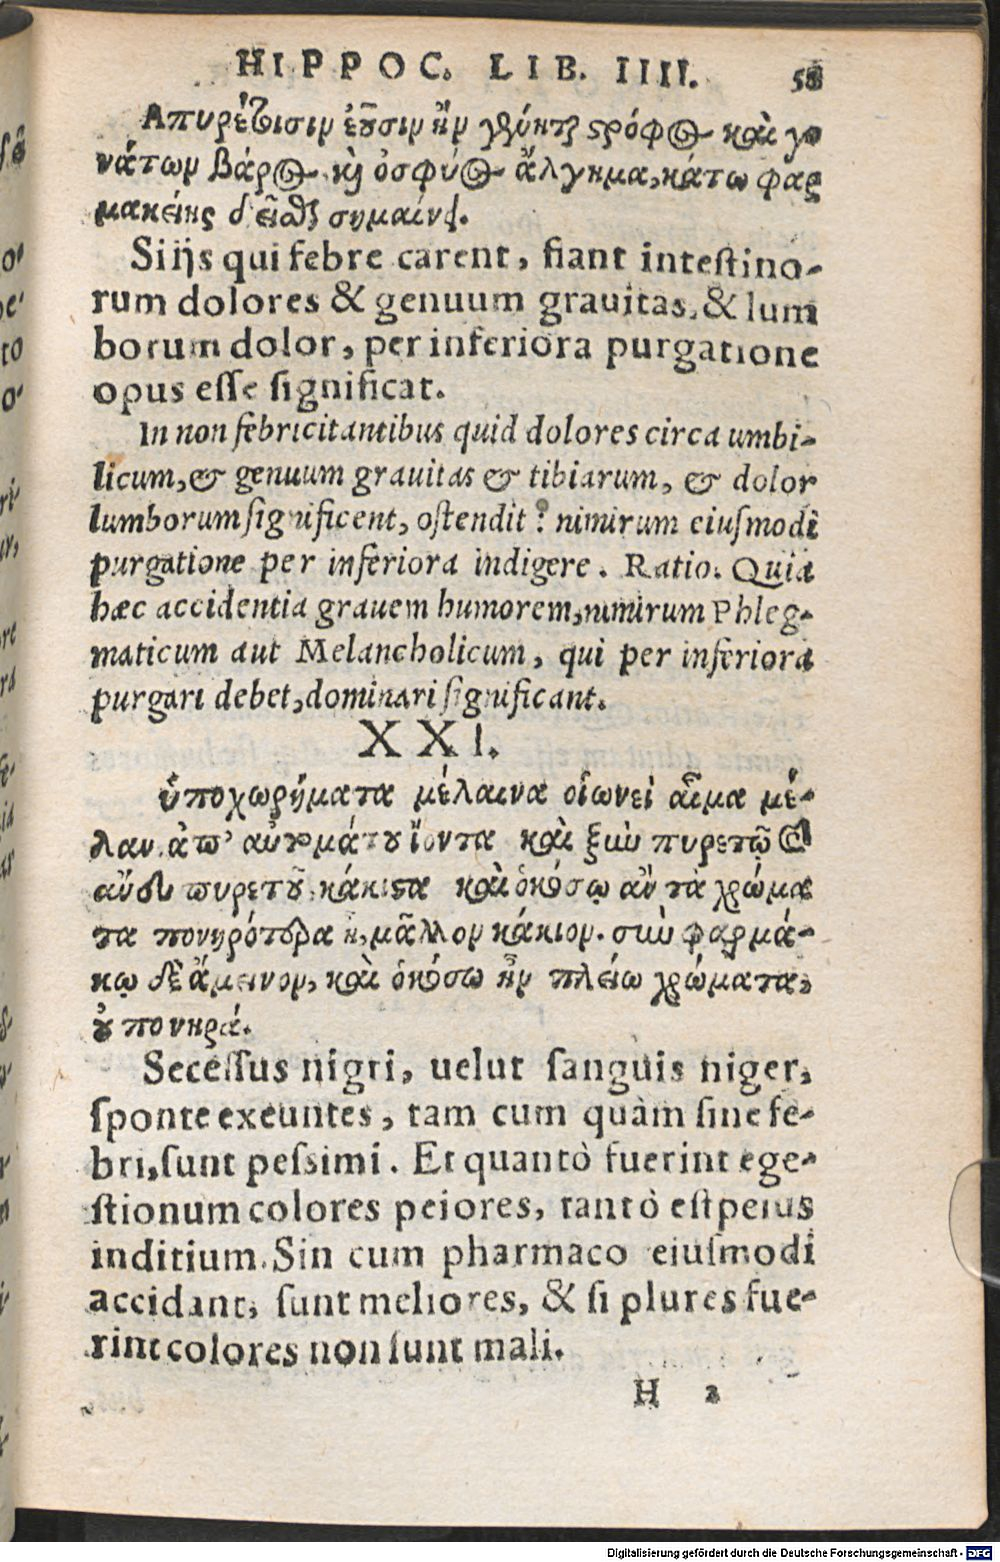 HIPPOC. LIB. IIII. 58
Απυρέτοισιν ἐοῦσιν ἢν γένηται στρόφος καὶ γο
νάτων βάρος, καὶ ὀσφύος ἄλγημα, κάτω φαρ
μακείης δεῖσθαι σημαίνει.
Si ijs qui febre carent, fiant intestino-
rum dolores & genuum grauitas, & lum
borum dolor, per inferiora purgatione
opus esse significat.
In non febricitantibus quid dolores circa umbi-
licum, & genuum grauitas & tibiarum, & dolor
lumborum significent, ostendit: nimirum eiusmodi
purgatione per inferiora indigere. Ratio. Quia
hæc accidentia grauem humorem, nimirum Phleg-
maticum aut Melancholicum, qui per inferiora
purgari debet, dominari significant.
XXI.
ὑποχωρήματα μέλαινα οἱωνεὶ αἷμα μέ-
λαν, ἀπ' αὐτομάτου ἰόντα καὶ ξὺν πυρετῷ καὶ
ἄνευ πυρετοῦ, κάκιστα καὶ ὁκόσῳ ἂν τὰ χρώμα
τα πονηρότερα ᾖ, μᾶλλον κάκιον. σὺν φαρμά-
κῳ δὲ ἄμεινον, καὶ ὁκόσω ἢν πλείω χρώματα,
οὐ πονηρά.
Secessus nigri, uelut sanguis niger,
sponte exeuntes, tam cum quàm sine fe-
bri, sunt pessimi. Et quantò fuerint ege-
stionum colores peiores, tantò est peius
inditium. Sin cum pharmaco eiusmodi
accidant, sunt meliores, & si plures fue-
rint colores non sunt mali.
H 2
Digitalisierung gefördert durch die Deutsche Forschungsgemeinschaft - DFG